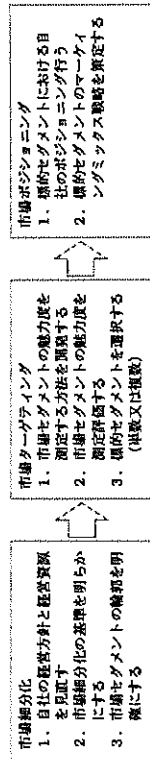 市場細分化
1. 自社の経営方針と経営資源
を見直す
2. 市場細分化の基準を明らか
にする
3. 市場セグメントの輪郭を明
確にする
市場ターゲティング
1. 市場セグメントの魅力度を
測定する方法を開発する
2. 市場セグメントの魅力度を
測定評価する
3. 標的セグメントを選択する
(単数又は複数)
市場ポジショニング
1. 標的セグメントにおける自
社のポジショニング行う
2. 標的セグメントのマーケティ
ングミックス戦略を策定する